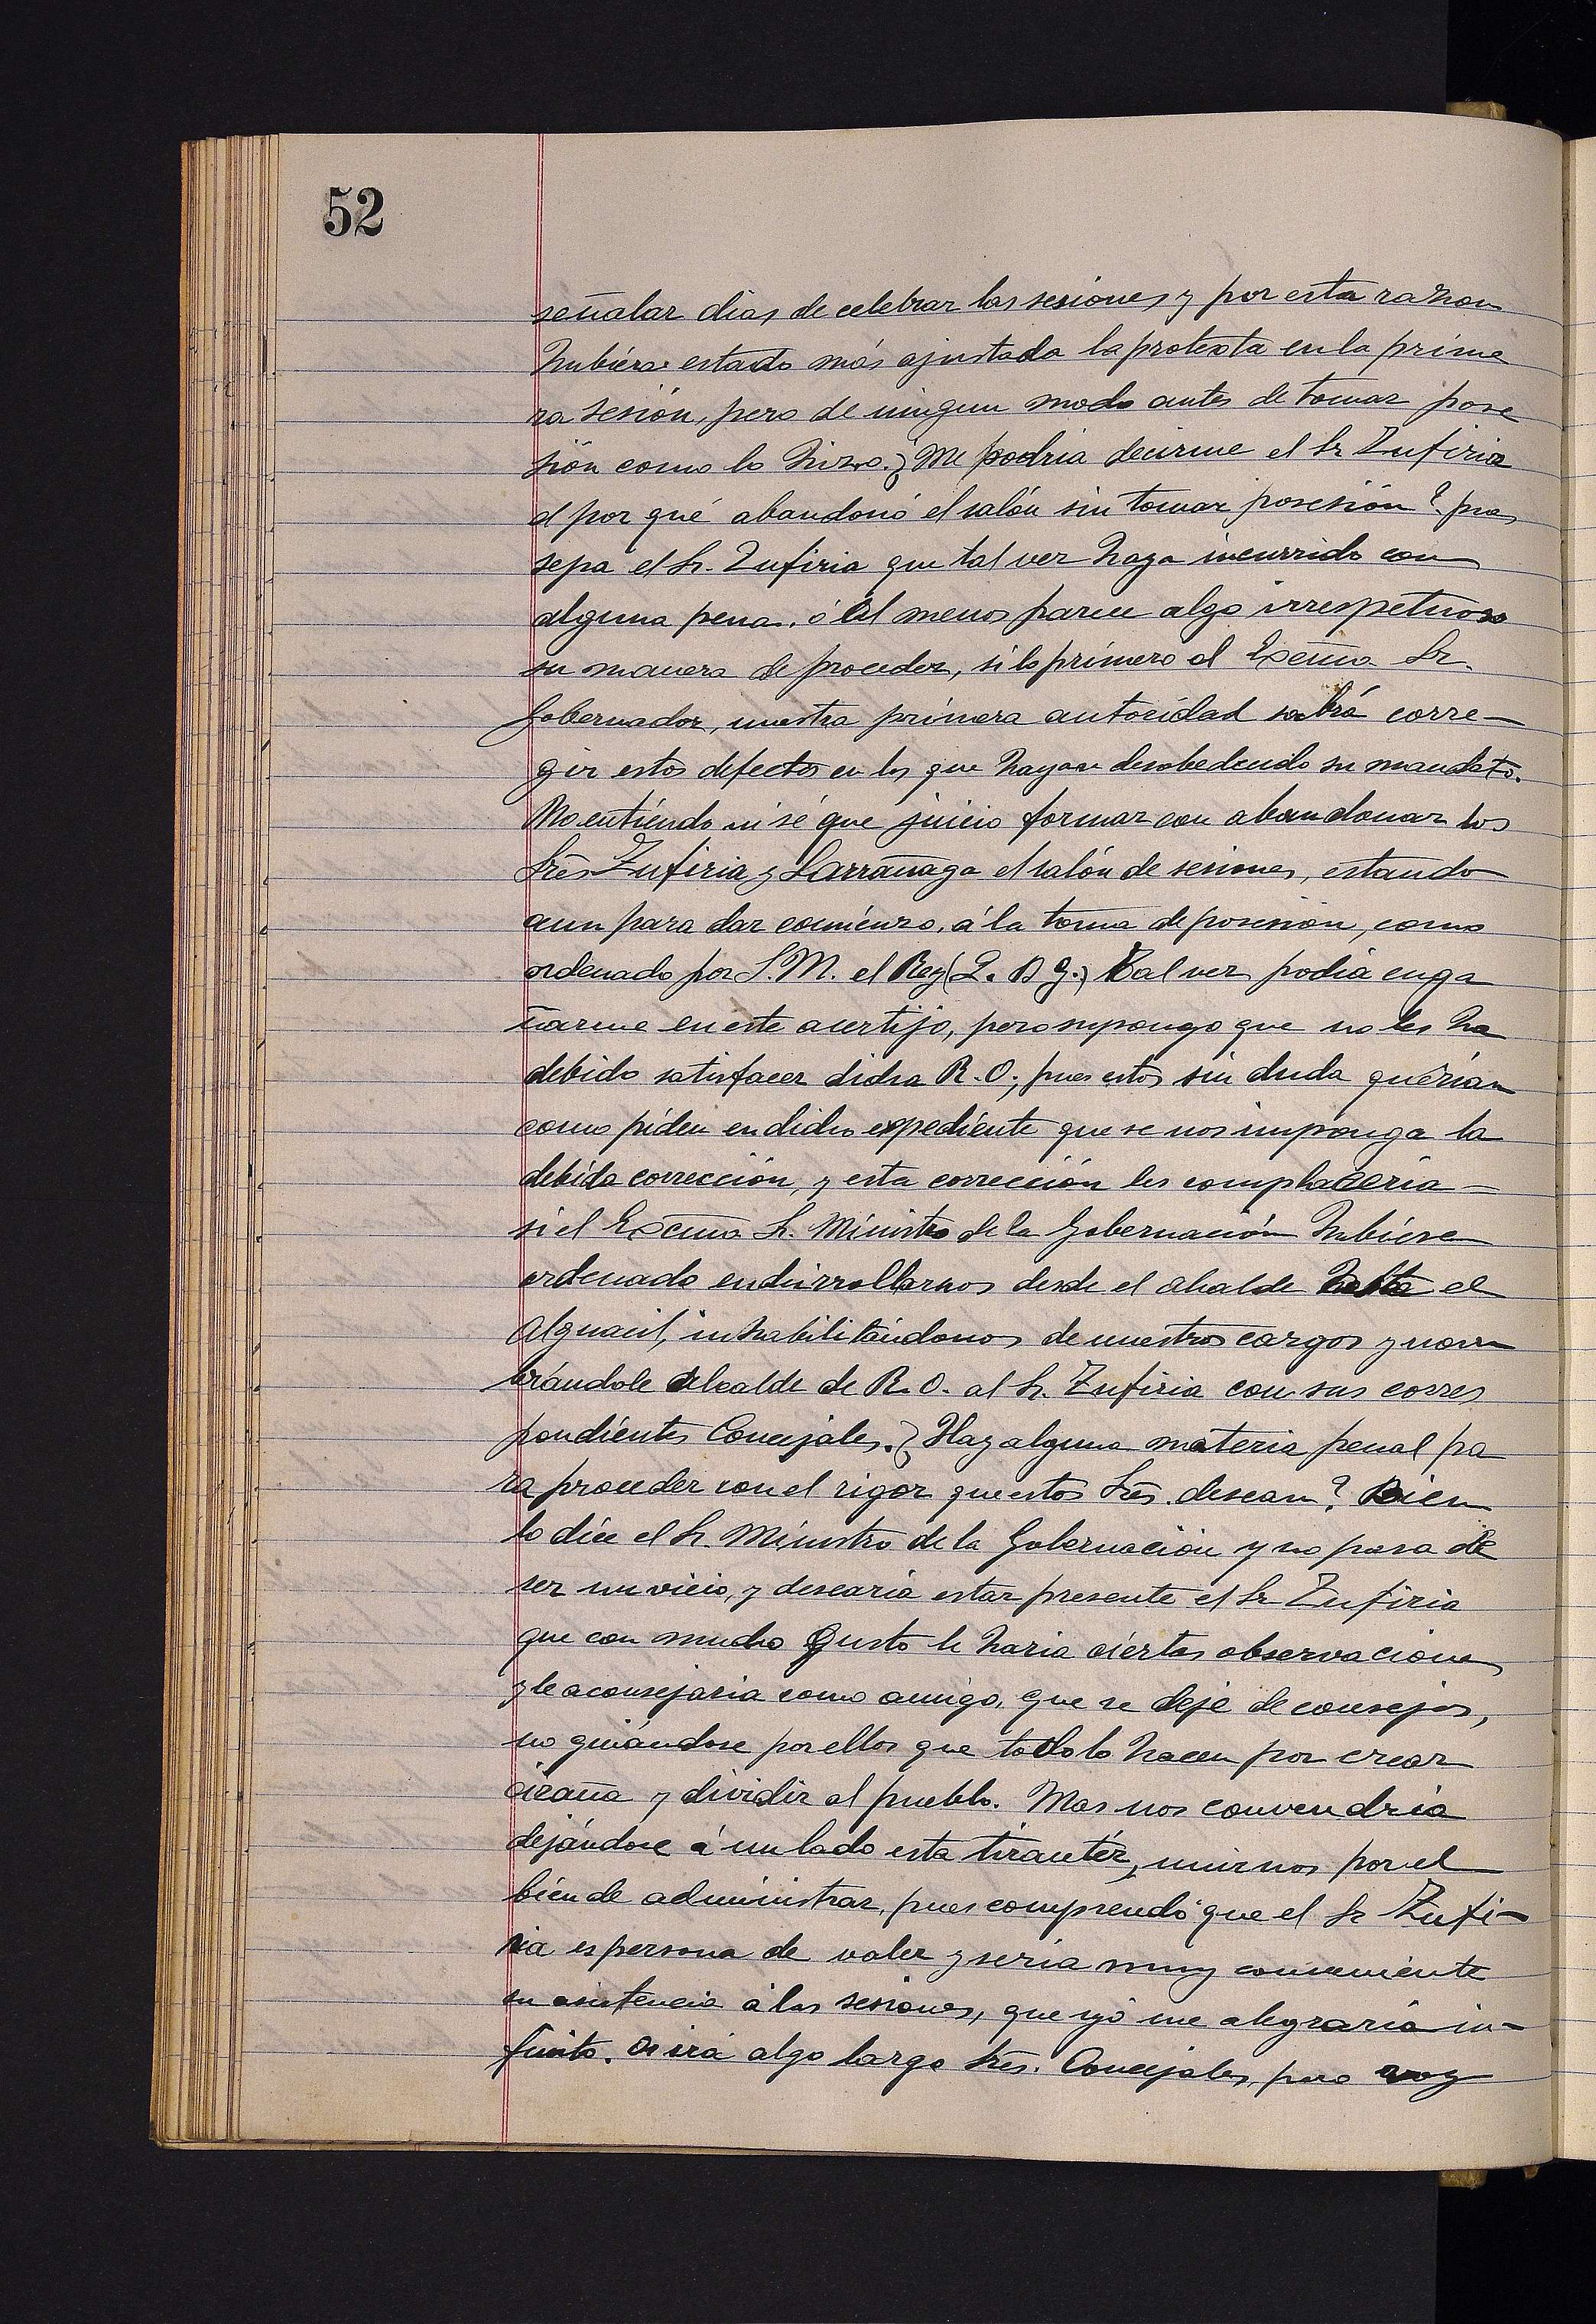 52
señalar dias de celebrar las sesiones y por esta razon
hubiera estado más ajustada la protexta en la prime
ra sesión, pero de ningun modo antes de tomar pose
sión como lo hizo. ¿Me podria decirme el Sr Zufiria
el por qué abandonó el salón sin tomar posesión? pues
sepa el Sr. Zufiria que tal vez haya incurrido con
alguna pena, ó al menos parece algo irrespetuoso
su manera de proceder, si lo primero el Excmo Sr.
Gobernador, nuestra primera autoridad sabrá corre-
gir estos defectos en los que hayan desobedecido su mandato.
No entiendo ni sé que juicio formar con abandonar los
Sres Zufiria y Larrañaga el salón de sesiones, estando
aun para dar comienzo, á la toma de posesion, como
ordenado por S.M. el Rey (Q. D G.) Tal vez podia enga
ñarme en este acertijo, pero supongo que no les ha
debido satisfacer dicha R.O.; pues estos sin duda querian
como piden en dicho expediente que se nos imponga la
debida corrección, y esta corrección les complaceria -
si el Excmo Sr. Ministro de la Gobernación hubiere
ordenado enchirrollarnos desde el alcalde hasta el
Alguacil, inhabilitándonos de nuestros cargos y nom
brándole Alcalde de R.O. al Sr. Zufiria con sus corres
pondientes Concejales. ¿Hay alguna materia penal pa
ra proceder con el rigor que estos Sres. desean? Bien
lo dice el Sr. Ministro de la Gobernación y no pasa de
ser un vicio, y desearia estar presente el Sr Zufiria
que con mucho gusto le haria ciertas observaciones
y le aconsejaria como amigo, que se deje de consejos,
no guiándose por ellos que todo lo hacen por crear
cizaña y dividir al pueblo. Mas nos convendria
dejándose á un lado esta tirantéz, unirnos por el
bien de administrar, pues comprendo que el Sr Zufi-
ria es persona de valer y seria muy conveniente
su asistencia á las sesiones, que yó me alegraria in-
finito. algo largo Sres. Concejales, pero voy